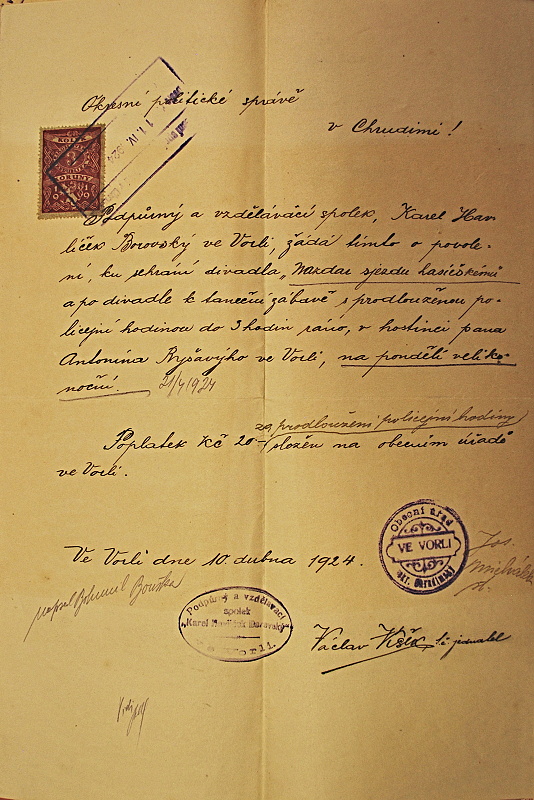 Okresní politické správě
v Chrudimi!
KOLEK
KORUNY
1. IV. 1924
Podpůrný a vzdělávácí spolek, Karel Hav-
líček Borovský ve Vorli, žádá tímto o povole-
ní, ku sehrání divadla „Nazdar sjezdu hasičskému
a po divadle k taneční zábavě s prodlouženou po-
licejní hodinou do 3 hodin ráno, v hostinci pana
Antonína Ryšavýho ve Vorli, na pondělí veliko-
noční. 21/4 1924
za prodloužení policejní hodiny
Poplatek Kč 20- složen na obecním úřadě
ve Vorli.
Ve Vorli dne 10. dubna 1924.
Obecní úřad
VE VORLI
Jos.
Bohumil Bouška
Podpůrný a vzdělávací
spolek
„Karel Havlíček Borovský"
Vorli.
Václav t. č. jednatel